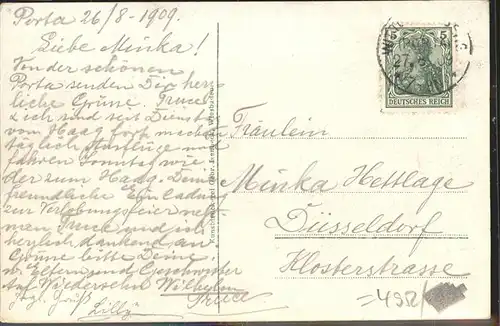 Porta 26/8-1909.
Liebe Minka!
Von der schönen
Porta senden Dir herz-
liche Grüße. Truce
& ich sind seit Dienstag
vom Haag fort machen
täglich Ausflüge und
fahren Sonntag wie-
der zum Haag. Deine
freundliche Einladung
zur Verlobungsfeier neh-
men Truce und ich
herzlich dankend an
Grüße bitte Deine
w. Eltern und Geschwister
Auf Wiedersehn Wilhelm
Truce
Lilly
5 5
27.8
DEUTSCHES REICH
Fräulein
Minka Hettlage
Düsseldorf
Klosterstrasse